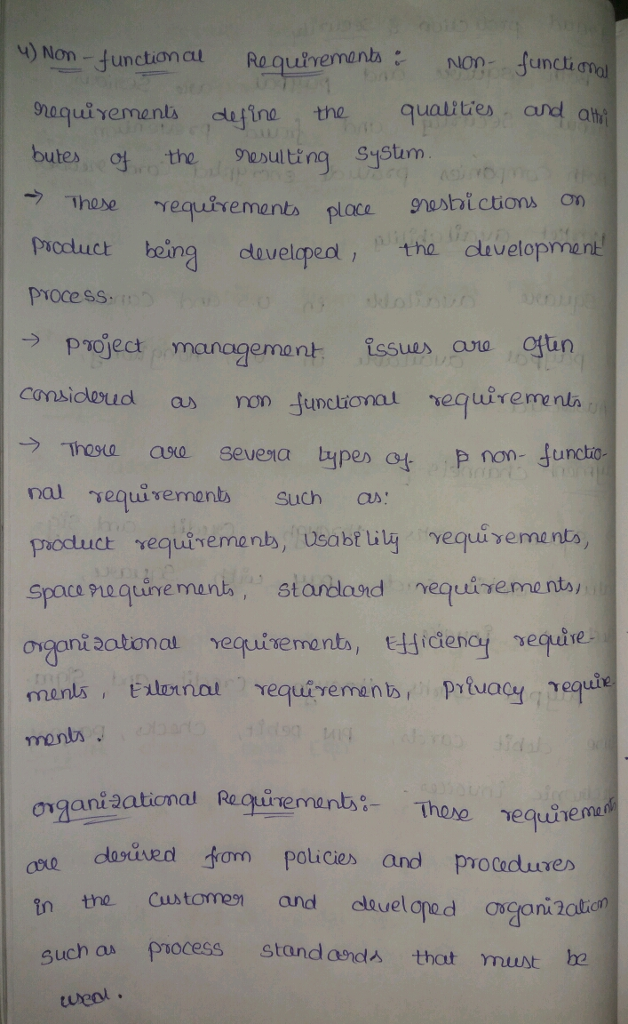 4) Non-functional Requirements: Non-functional
requirements define the qualities and attri
butes of the resulting system.
→ These requirements place restrictions on
product being developed, the development
process.
→ project management issues are often
considered as non functional requirements
→ There are severa types of p non-functio-
nal requirements such as:
product requirements, Usability requirements,
space requirements, standard requirements,
organizational requirements, Efficiency require-
ments, External requirements, privacy require
ments.
organizational Requirements:- These requirement
are derived from policies and procedures
in the customer and developed organization
such as process standards that must be
used.